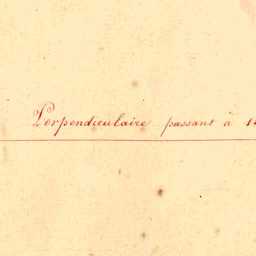 Perpendiculaire passant à 14